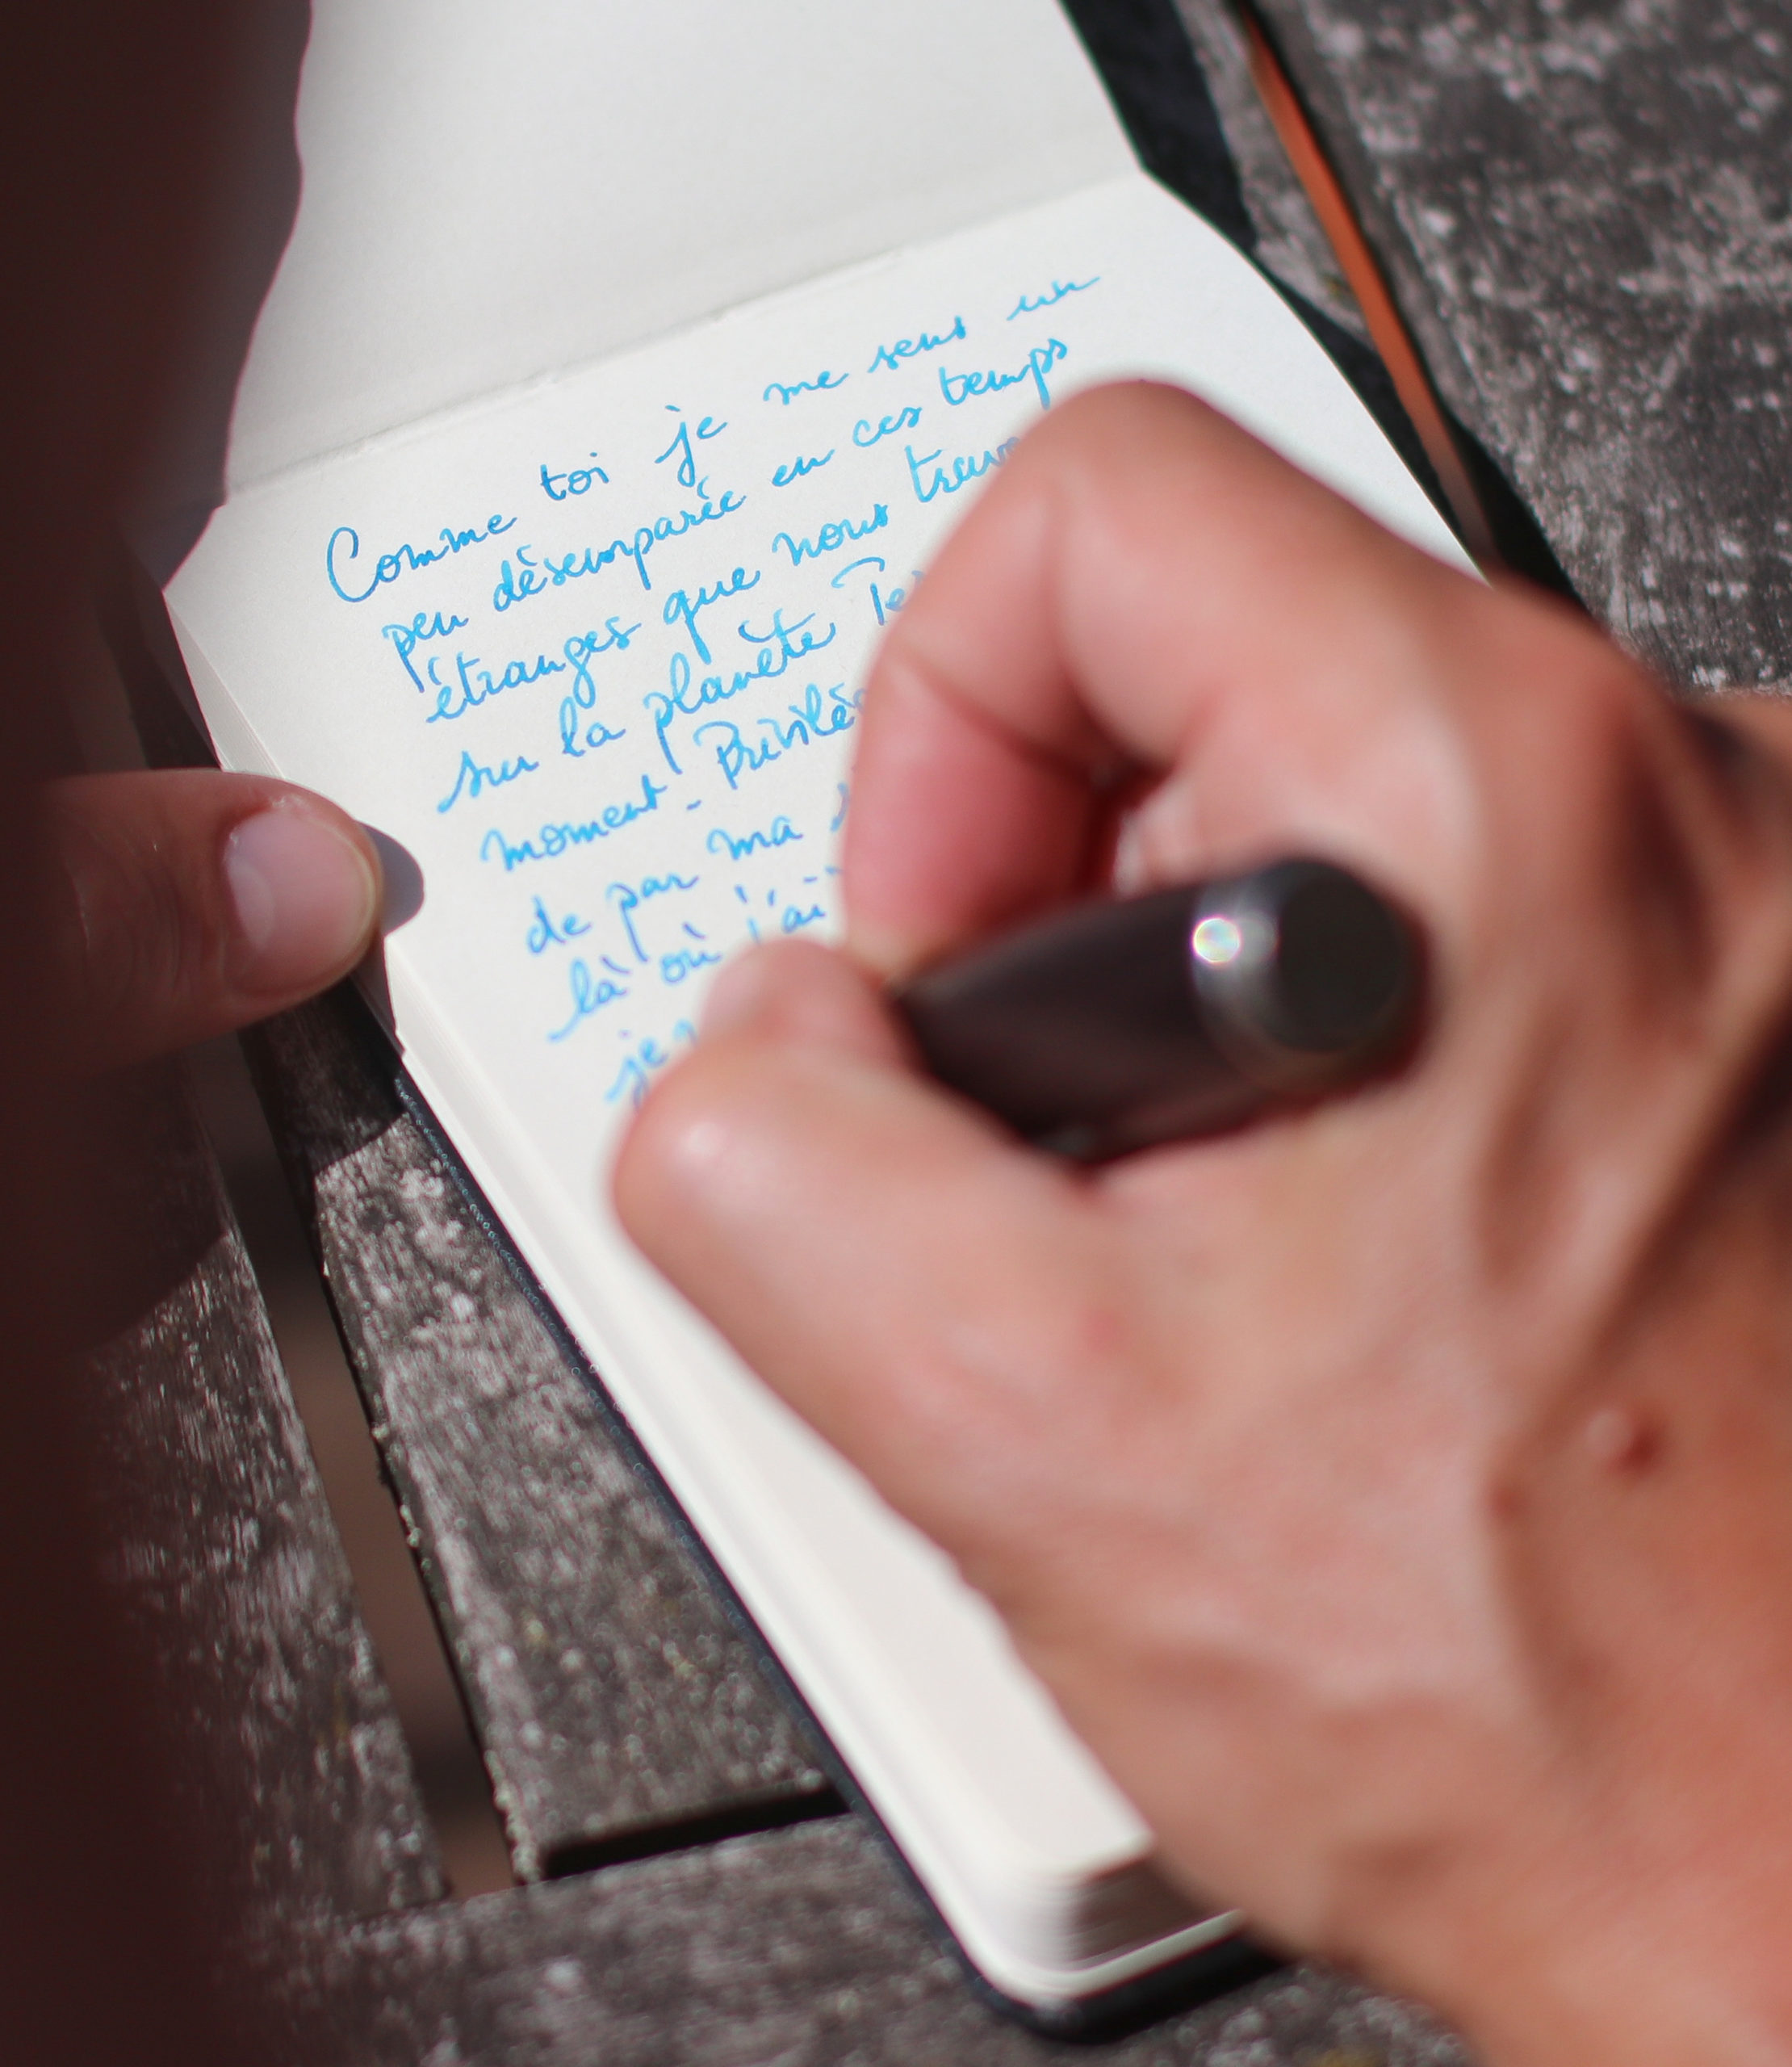 Comme toi je me sens un
peu désemparée en ces temps
étranges que nous
sur la planète
moment. 
de par ma
là où j'ai
je